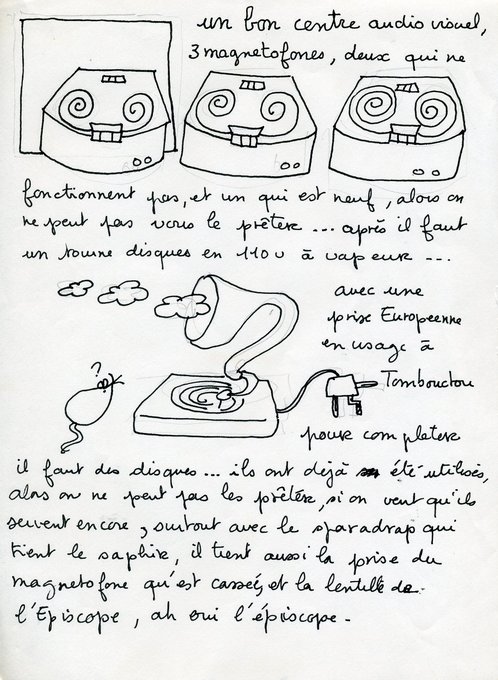 un bon centre audio visuel,
3 magnetofones, deux qui ne
fonctionnent pas, et un qui est neuf, alors on
ne peut pas vous le prêter ... après il faut
un tourne disques en 110 v à vapeur ...
avec une
prise Européenne
en usage à
Tombouctou
?
pour completer
il faut des disques ... ils ont dejà été utilisés,
alors on ne peut pas les prêtér, si on veut qu'ils
servent encore, surtout avec le sparadrap qui
tient le saphir, il tient aussi la prise du
magnetofone qu'est cassée, et la lentille de
l'Episcope, ah oui l'épiscope -